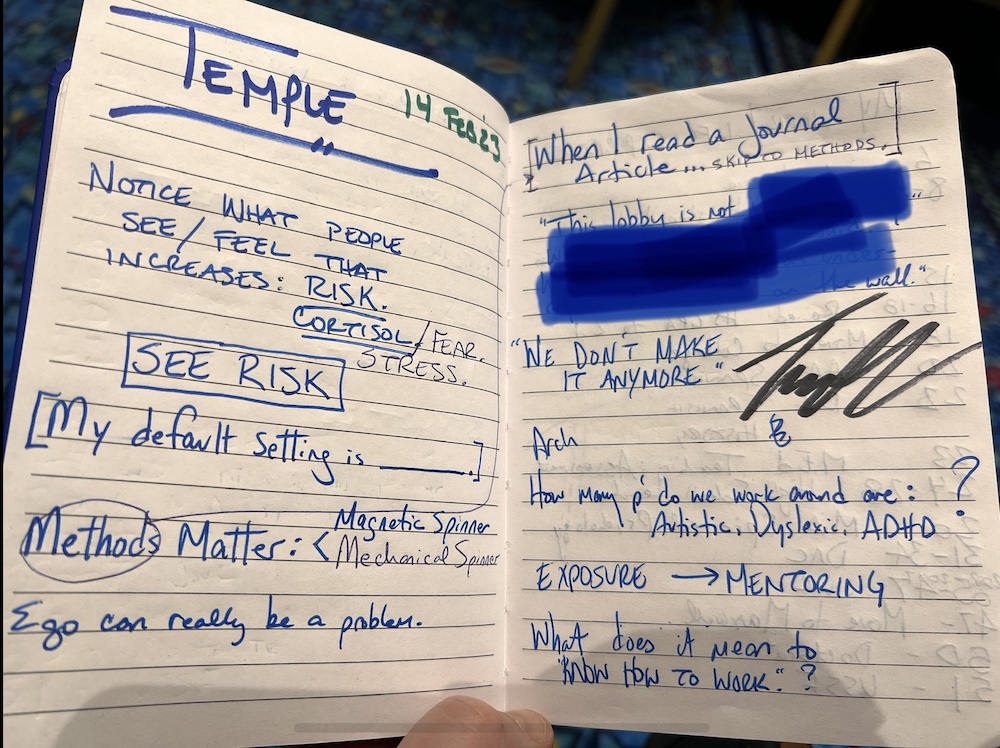 TEMPLE
14 FEB 23
NOTICE WHAT PEOPLE
SEE / FEEL THAT
INCREASES: RISK.
CORTISOL / FEAR.
STRESS.
SEE RISK
[My default setting is ______.]
Methods Matter: < Magnetic Spinner
Mechanical Spinner
Ego can really be a problem.
[When I read a Journal]
Article... SKIP TO METHODS.
"This lobby is not
the wall."
"WE DON'T MAKE
IT ANYMORE"
Arch
How many p' do we work around are: ?
Autistic, Dyslexic, ADHD
EXPOSURE → MENTORING
What does it mean to
"KNOW HOW TO WORK."?